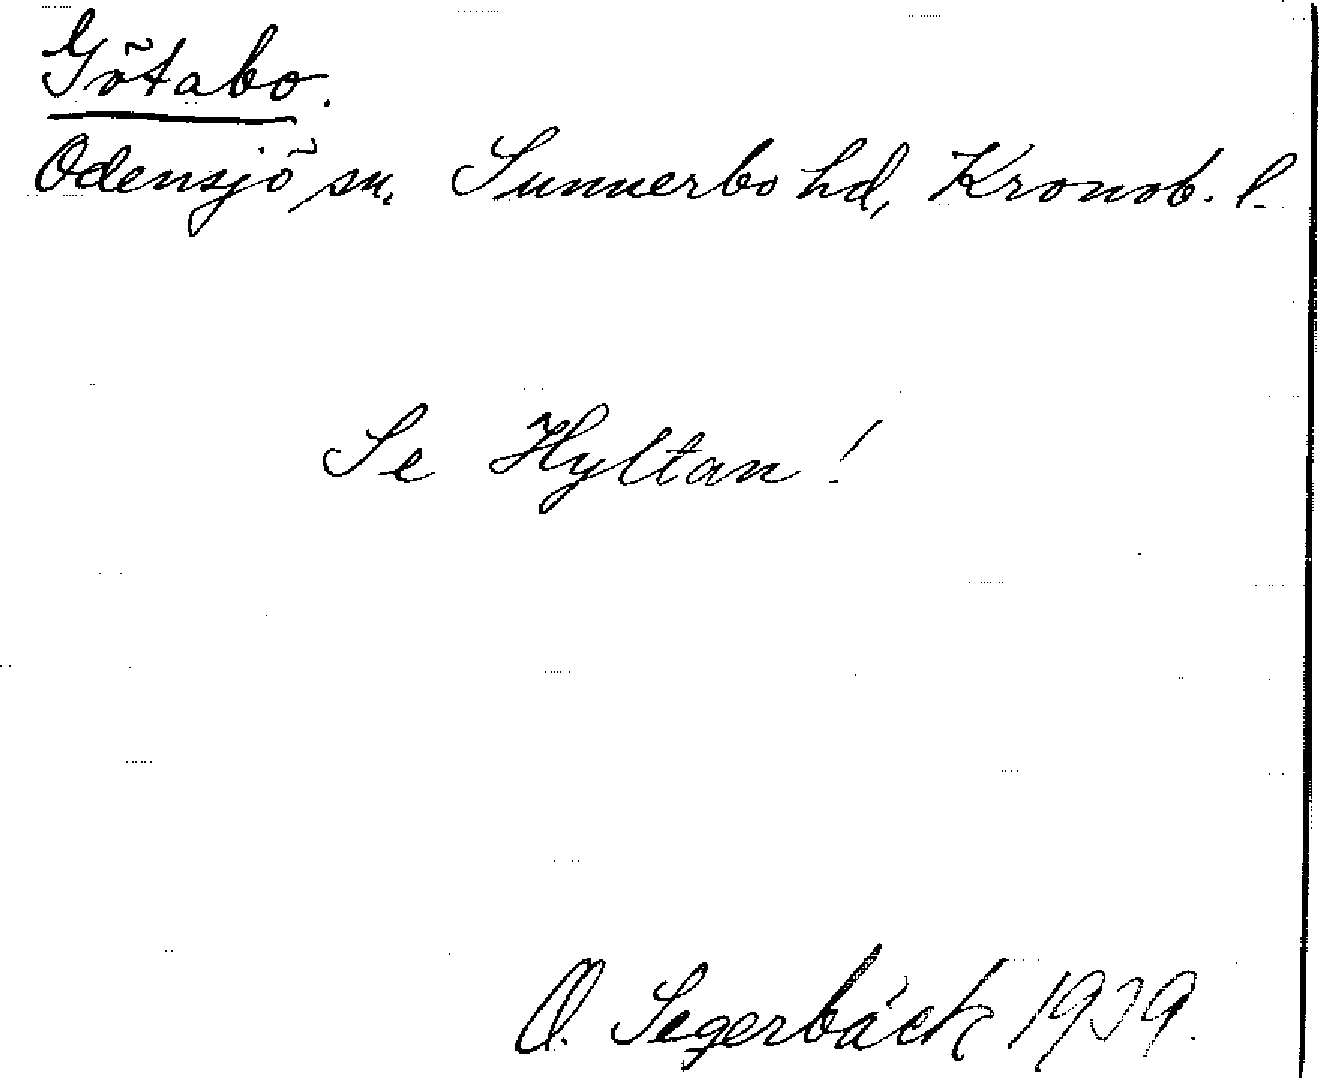 Götabo.
Odensjö sn. Sunnerbo hd, Kronob. l.
Se Hyltan!
O. Segerbäck 1939.